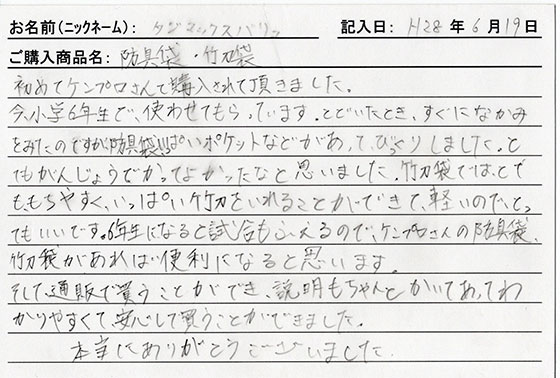 お名前(ニックネーム): タジマックスパリッ 記入日: H28 年 6 月 19 日
ご購入商品名: 防具袋・竹刀袋
初めてケンプロさんで購入されて頂きました。
今、小学6年生で、使わせてもらっています。とどいたとき、すぐになかみ
をみたのですが防具袋はいっぱいポケットなどがあって、びっくりしました。と
てもがんじょうでかってよかったなと思いました。竹刀袋では、とて
ももちやすく、いっぱい竹刀をいれることができて、軽いので、とっ
てもいいです。6年生になると試合もふえるので、ケンプロさんの防具袋、
竹刀袋があれば便利になると思います。
そして、通販で買うことができ、説明もちゃんとかいてあってわ
かりやすくて、安心して買うことができました。
本当にありがとうございました。